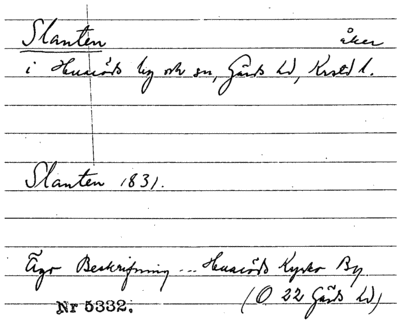 Slanten åker
i Huaröds by och sn, Gärds hd, Krstd l.
Slanten 1831.
Ägo Beskrifning ... Huaröds Kyrko By
(O 22 Gärds hd)
Nr 5332.